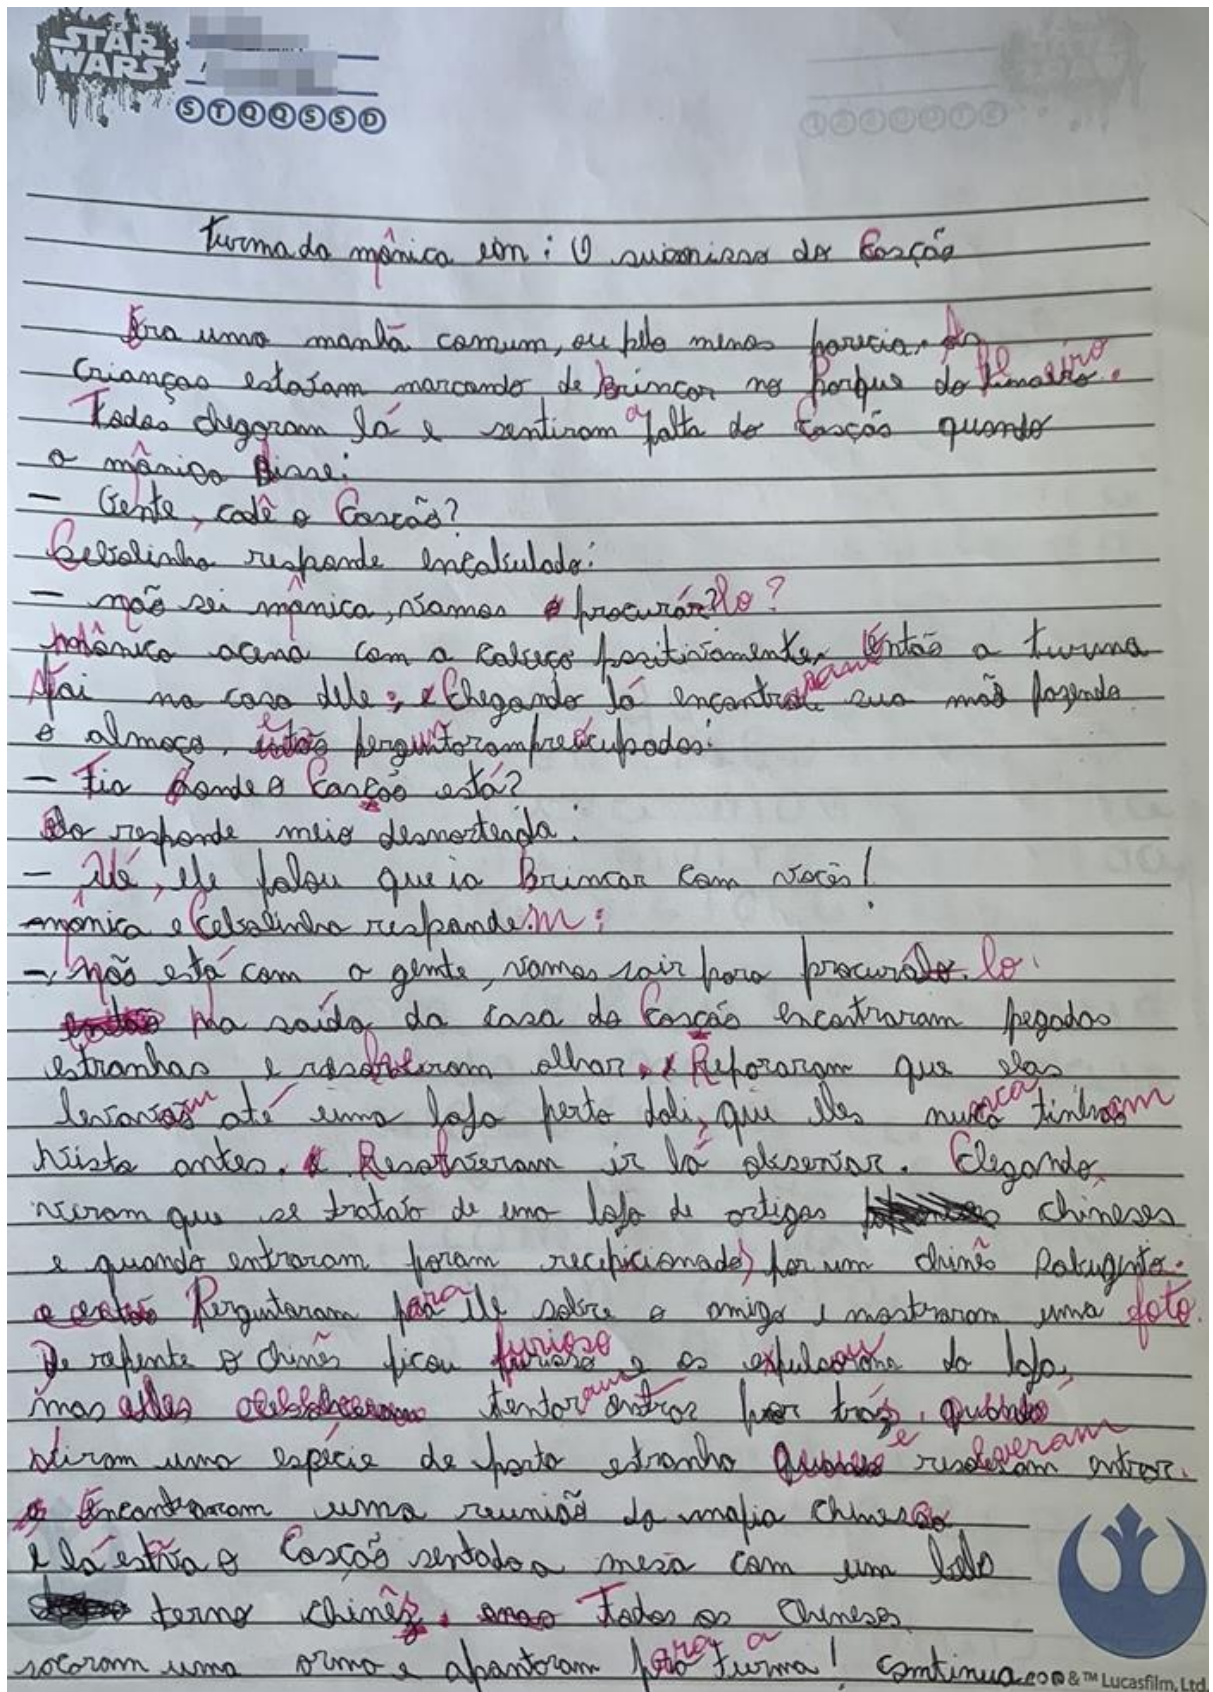 STAR
WARS
S T Q Q S S D
Turma da mônica em: O sumisso do Cascão
Era uma manhã comum, ou pelo menos parecia. As
crianças estavam marcando de brincar no Parque do Limoeiro.
Todos chegaram lá e sentiram a falta do Cascão quando
a mônica disse:
— Gente, cadê o Cascão?
Cebolinha responde encalculado:
— não sei mônica, vamos procurá-lo?
mônica acena com a cabeça positivamente, então a turma
Vai na casa dele; Chegando lá encontraram sua mãe fazendo
o almoço, e perguntaram preocupados:
— Tia aonde o Cascão está?
Ela responde meio desnorteada:
— Ué, ele falou que ia Brincar com vocês!
mônica e Cebolinha respondem:
— não está com a gente, vamos sair para procurá-lo.
na saída da casa do Cascão encontraram pegadas
estranhas e resolveram olhar. Repararam que elas
levavam até uma loja perto dali, que eles nunca tinham
vista antes. Resolveram ir lá observar. Chegando,
viram que se tratava de uma loja de artigos chineses
e quando entraram foram recepicionados por um chinês
Perguntaram para ele sobre o amigo e mostraram uma foto.
De repente o chinês ficou furioso e os expulsou da loja,
mas tentaram entrar por trás,
viram uma espécie de porta estranha e resolveram entrar.
Encontraram uma reunião da mafia chinesa
e lá estava o Cascão sentado a mesa com um belo
terno chinês. Todos os chineses
sacaram uma arma e apontaram para a turma! Continua...
& ™ Lucasfilm, Ltd